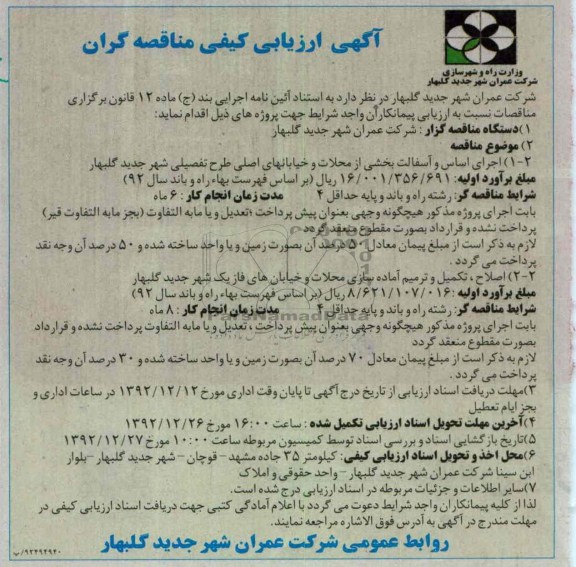 آگهی ارزیابی کیفی مناقصه گران
وزارت راه و شهرسازی
شرکت عمران شهر جدید گلبهار
شرکت عمران شهر جدید گلبهار در نظر دارد به استناد آئین نامه اجرایی بند (ج) ماده ۱۲ قانون برگزاری
مناقصات نسبت به ارزیابی پیمانکاران واجد شرایط جهت پروژه های ذیل اقدام نماید:
۱)دستگاه مناقصه گزار : شرکت عمران شهر جدید گلبهار
۲) موضوع مناقصه
۲-۱) اجرای اساس و آسفالت بخشی از محلات و خیابانهای اصلی طرح تفصیلی شهر جدید گلبهار
مبلغ برآورد اولیه: ۱۶/۰۰۱/۳۵۶/۶۹۱ ریال (بر اساس فهرست بهاء راه و باند سال ۹۲)
شرایط مناقصه گر: رشته راه و باند و پایه حداقل ۴ مدت زمان انجام کار : ۶ ماه
بابت اجرای پروژه مذکور هیچگونه وجهی بعنوان پیش پرداخت ،تعدیل و یا مابه التفاوت (بجز مابه التفاوت قیر)
پرداخت نشده و قرارداد بصورت مقطوع منعقد گردد
لازم به ذکر است از مبلغ پیمان معادل ۵۰ درصد آن بصورت زمین و یا واحد ساخته شده و ۵۰ درصد آن وجه نقد
پرداخت می گردد .
۲-۲) اصلاح ، تکمیل و ترمیم آماده سازی محلات و خیابان های فاز یک شهر جدید گلبهار
مبلغ برآورد اولیه :۸/۶۲۱/۱۰۷/۰۱۶ ریال (بر اساس فهرست بهاء راه و باند سال ۹۲)
شرایط مناقصه گر: رشته راه و باند و پایه حداقل ۴ مدت زمان انجام کار : ۸ ماه
بابت اجرای پروژه مذکور هیچگونه وجهی بعنوان پیش پرداخت ، تعدیل و یا مابه التفاوت پرداخت نشده و قرارداد
بصورت مقطوع منعقد گردد
لازم به ذکر است از مبلغ پیمان معادل ۷۰ درصد آن بصورت زمین و یا واحد ساخته شده و ۳۰ درصد آن وجه نقد
پرداخت می گردد .
۳)مهلت دریافت اسناد ارزیابی از تاریخ درج آگهی تا پایان وقت اداری مورخ ۱۳۹۲/۱۲/۱۲ در ساعات اداری و
بجز ایام تعطیل
۴)آخرین مهلت تحویل اسناد ارزیابی تکمیل شده : ساعت ۱۶:۰۰ مورخ ۱۳۹۲/۱۲/۲۶
۵)تاریخ بازگشایی اسناد و بررسی اسناد توسط کمیسیون مربوطه ساعت ۱۰:۰۰ مورخ ۱۳۹۲/۱۲/۲۷
۶)محل اخذ و تحویل اسناد ارزیابی کیفی: کیلومتر ۳۵ جاده مشهد - قوچان - شهر جدید گلبهار -بلوار
ابن سینا شرکت عمران شهر جدید گلبهار - واحد حقوقی و املاک
۷)سایر اطلاعات و جزئیات مربوطه در اسناد ارزیابی درج شده است.
لذا از کلیه پیمانکاران واجد شرایط دعوت می گردد با اعلام آمادگی کتبی جهت دریافت اسناد ارزیابی کیفی در
مهلت مندرج در آگهی به آدرس فوق الاشاره مراجعه نمایند.
روابط عمومی شرکت عمران شهر جدید گلبهار
۹۲۴۹۴۹۴۰/پ